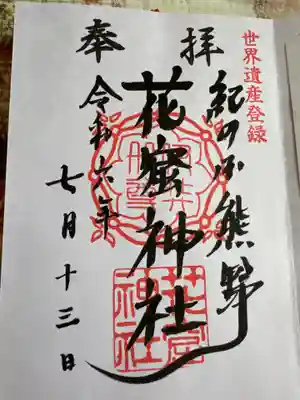 世界遺産登録
奉拝
紀の国熊野
花窟神社
令和六年
七月十三日
花窟
神社